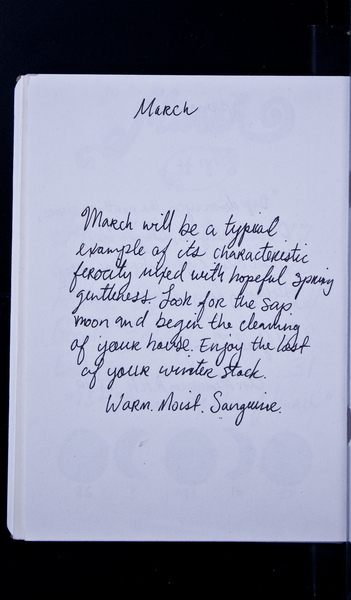 March
March will be a typical
example of its characteristic
ferocity mixed with hopeful spring
gentleness. Look for the sap
moon and begin the cleaning
of your house. Enjoy the last
of your winter stock.
Warm. Moist. Sanguine.